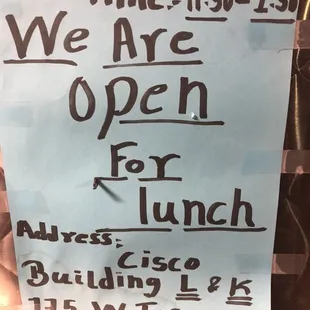 We Are
Open
For
lunch
Address:
Cisco
Building L & K